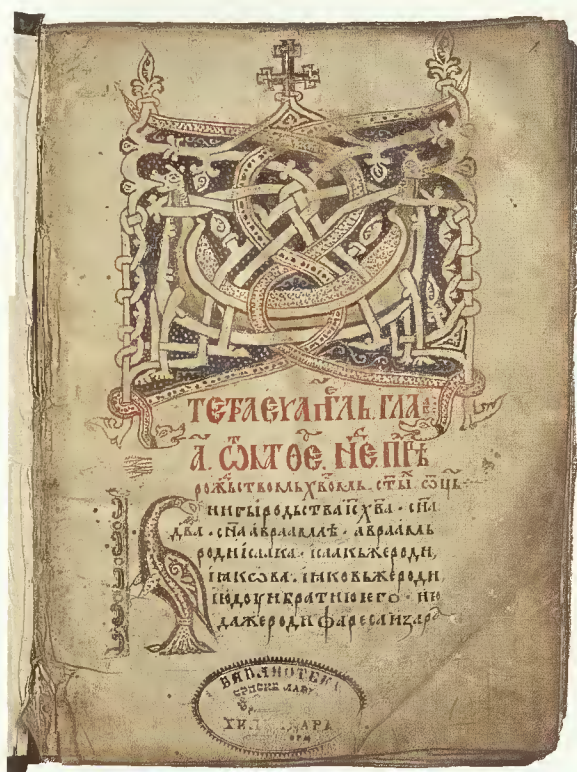 ТЕТРАЕѴАГГЛЬ. ГЛА
А҃. ѾМАТѲЕ҃. НЕ ПРѢ
рожьствомь х҃вомь. ст҃ы ѿць
К нигы родьства іс҃ х҃ва · сн҃а
дв҃а · сн҃а авраамлѣ · авраамь
роди ісаака · ісаакьжероди
іакѡва · іаковьжероди
іюдоу и братию ѥго · ию
дажероди фареса и зар
БИБЛИОТЕКА
СРПСКЕ ЛАВР
ХИЛАНДАРА